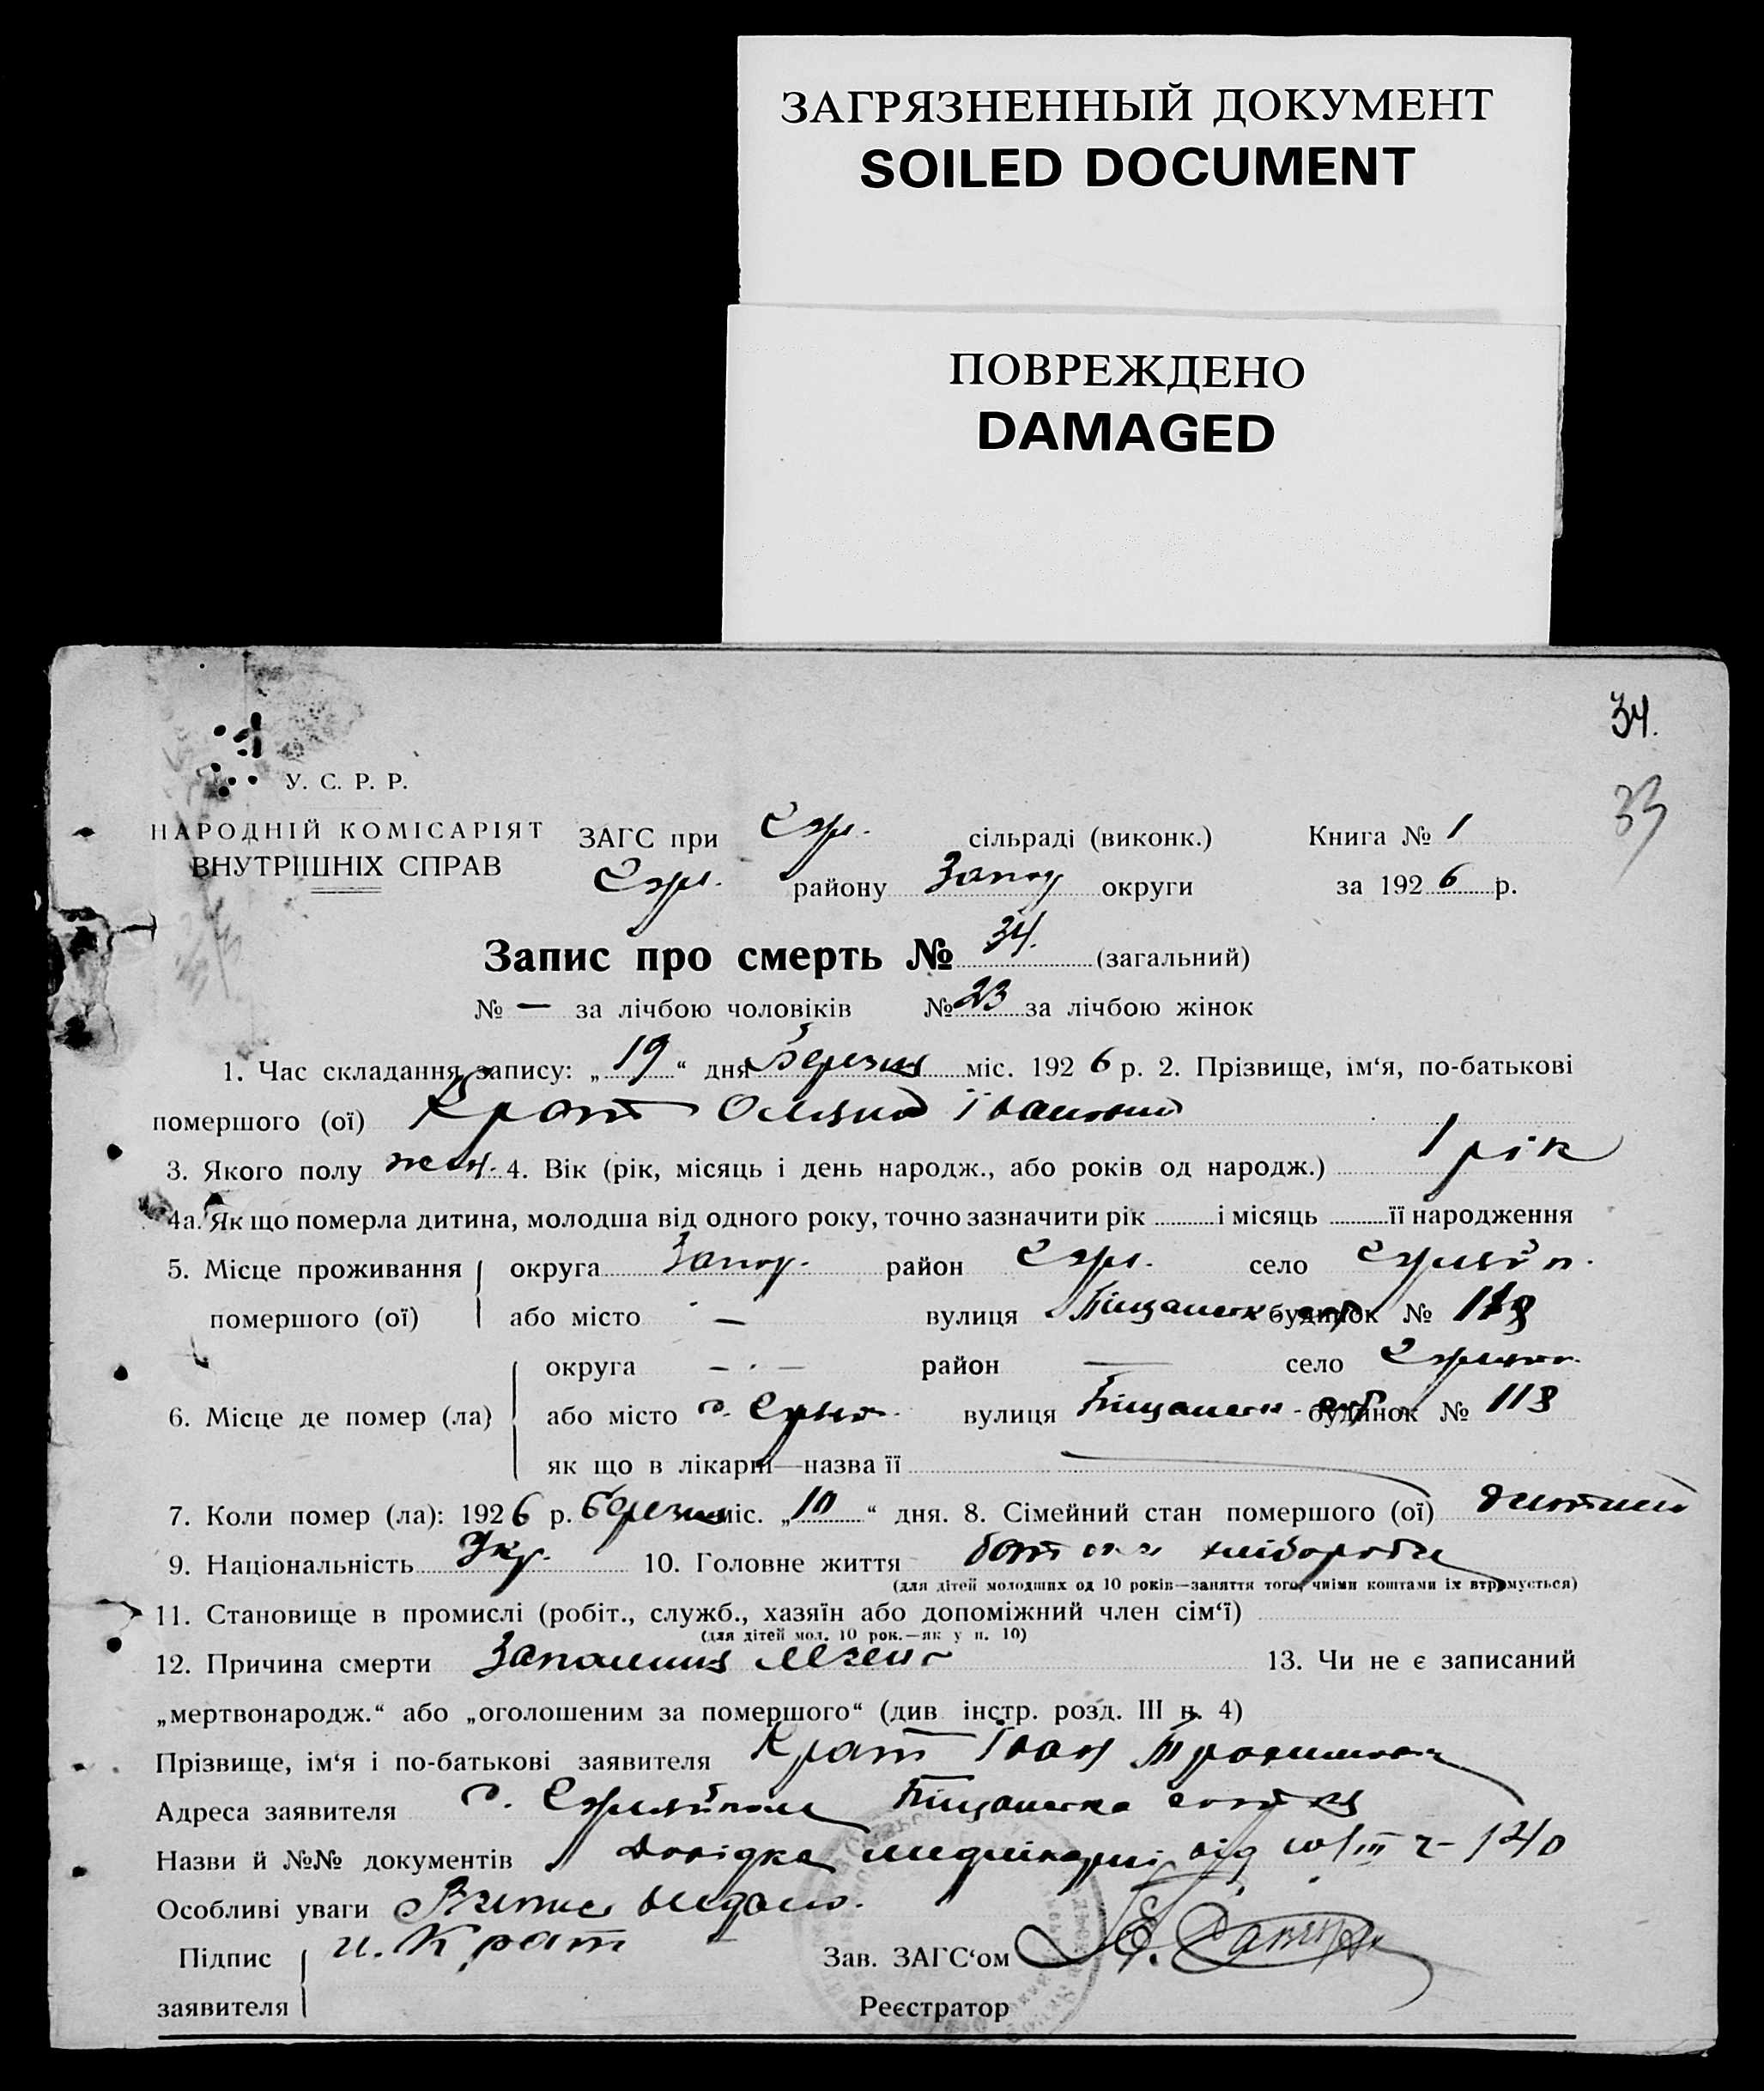 ЗАГРЯЗНЕННЫЙ ДОКУМЕНТ
SOILED DOCUMENT
ПОВРЕЖДЕНО
DAMAGED
34.
33
У. С. Р. Р.
НАРОДНІЙ КОМІСАРІЯТ
ВНУТРІШНІХ СПРАВ
ЗАГС при сільраді (виконк.) Книга № 1
району Запор округи за 1926 р.
Запис про смерть № 34. (загальний)
№ — за лічбою чоловіків № 23 за лічбою жінок
1. Час складання запису: „19“ дня Березня міс. 1926 р. 2. Прізвище, ім‘я, по-батькові
помершого (ої) Крат Іванівна
3. Якого полу жін. 4. Вік (рік, місяць і день народж., або років од народж.) 1 рік
4а. Як що померла дитина, молодша від одного року, точно зазначити рік і місяць її народження
5. Місце проживання округа Запор. район село
помершого (ої) або місто — вулиця Піщанськ будинок №
округа — · — район — село
6. Місце де помер (ла) або місто вулиця Піщанськ будинок № 118
як що в лікарні—назва її
7. Коли помер (ла): 1926 р. березня міс. „10“ дня. 8. Сімейний стан помершого (ої) дитина
9. Національність Укр. 10. Головне життя хлібороби
(для дітей молодших од 10 років—заняття того, чиїми коштами їх втримується)
11. Становище в промислі (робіт., служб., хазяїн або допоміжний член сім‘ї)
(для дітей мол. 10 рок.—як у п. 10)
12. Причина смерти Запалиння легенів 13. Чи не є записаний
„мертвонародж.“ або „оголошеним за помершого“ (див інстр. розд. III п. 4)
Прізвище, ім‘я і по-батькові заявителя Крат Іван Трохимович
Адреса заявителя Піщанська сотня
Назви й №№ документів Довідка медлікарні від 10/III ч– 140
Особливі уваги Витис видано.
Підпис и. Крат Зав. ЗАГС‘ом
заявителя Реєстратор